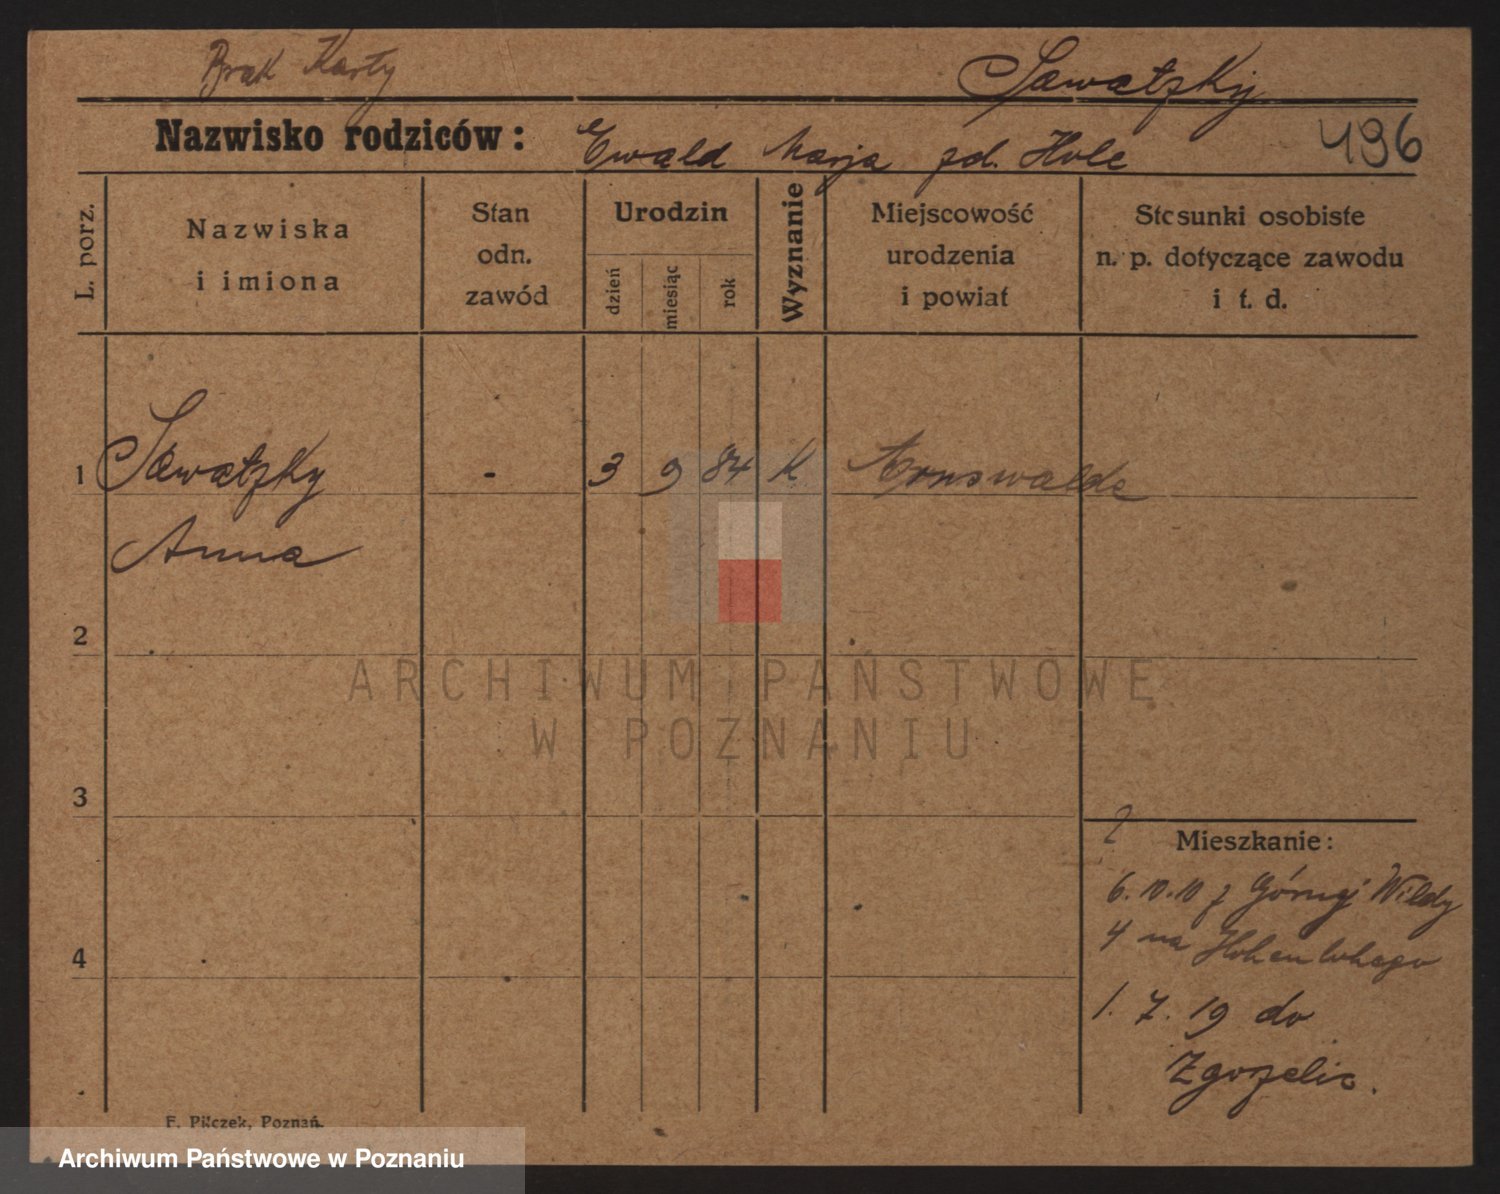 Brak Karty
Sawatzky
Nazwisko rodziców: Ewald Marja zd. Hole
496
L. porz.
Nazwiska
i imiona
Stan
odn.
zawód
Urodzin
dzień
miesiąc
rok
Wyznanie
Miejscowość
urodzenia
i powiat
Stosunki osobiste
n. p. dotyczące zawodu
i t. d.
1 Sawatzky - 3 9 84 K Arnswalde
Anna
2
3
4
Mieszkanie:
6.10.10 z Górnej Wildy
4 na
1. 7. 19 do
Zgorzelic.
F. Pilczek, Poznań.
ARCHIWUM PAŃSTWOWE
W POZNANIU
Archiwum Państwowe w Poznaniu